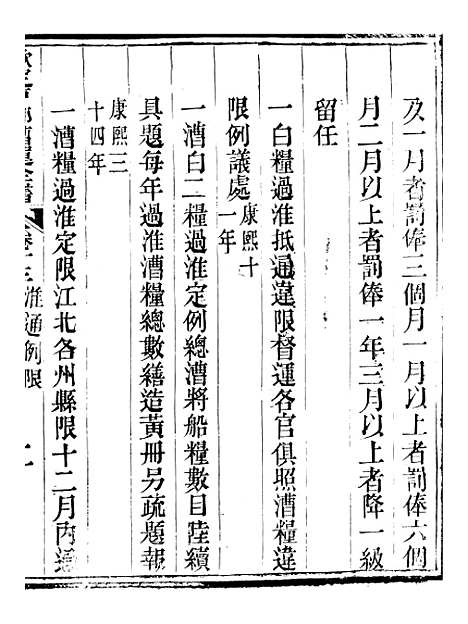 及一月者罰俸三個月一月以上者罰俸六個
月二月以上者罰俸一年三月以上者降一級
留任
一白糧過淮抵通違限督運各官俱照漕糧違
限例議處康熙十一年
一漕白二糧過淮定例總漕將船糧數目陸續
具題每年過淮漕糧總數繕造黃冊另疏題報
康熙三十四年
一漕糧過淮定限江北各州縣限十二月內過
漕運全書
卷十三淮通例限